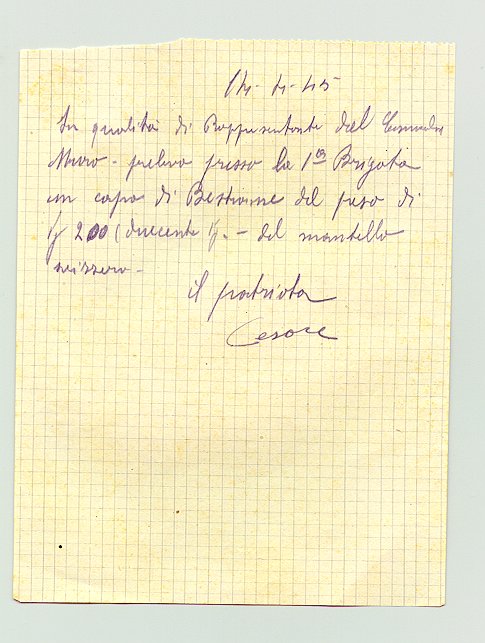 14-4-45
In qualità di Rappresentante del Comando
Muro - prelevo presso la 1ª Brigata
un capo di Bestiame del peso di
Kg 200 (duecento Kg. - del mantello
svizzero -
il patriota
Cesare